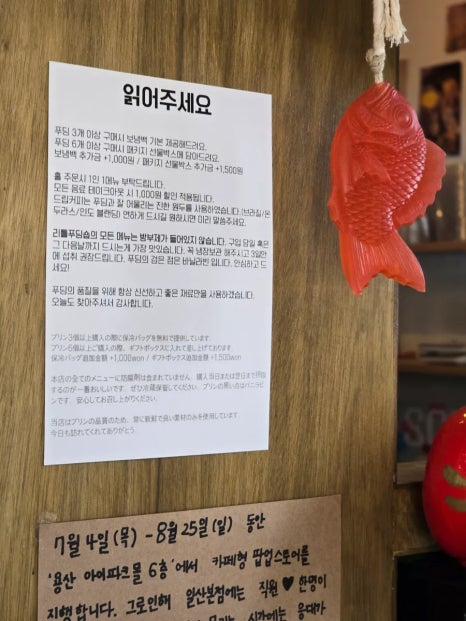 읽어주세요
푸딩 3개 이상 구매시 보냉백 기본 제공해드려요.
푸딩 6개 이상 구매시 패키지 선물박스에 담아드려요.
보냉백 추가금 +1,000원 / 패키지 선물박스 추가금 +1,500원
홀 주문시 1인 1메뉴 부탁드립니다.
모든 음료 테이크아웃 시 1,000원 할인 적용됩니다.
드립커피는 푸딩과 잘 어울리는 진한 원두를 사용하였습니다.(브라질/온
두라스/인도 블렌딩) 연하게 드시길 원하시면 미리 말씀주세요.
리틀푸딩숍의 모든 메뉴는 방부제가 들어있지 않습니다. 구입 당일 혹은
그 다음날까지 드시는게 가장 맛있습니다. 꼭 냉장보관 해주시고 3일안
에 섭취 권장드립니다. 푸딩의 검은 점은 바닐라빈 입니다. 안심하고 드
세요!
푸딩의 품질을 위해 항상 신선하고 좋은 재료만을 사용하겠습니다.
오늘도 찾아주셔서 감사합니다.
プリン3個以上購入の際に保冷バッグを無料で提供しています.
プリン6個以上ご購入の際、ギフトボックスに入れて差し上げております
保冷バッグ追加金額 +1,000won / ギフトボックス追加金額 +1,500won
本店の全てのメニューに防腐剤は含まれていません。購入当日または翌日まで
するのが一番おいしいです. ぜひ冷蔵保管してください. プリンの黒い点はバニラビ
ンです. 安心してお召し上がりください.
当店はプリンの品質のため、常に新鮮で良い素材のみを使用しています.
今日も訪れてくれてありがとう.
7月 4일 (목) - 8월 25일 (일) 동안
'용산 아이파크몰 6층'에서 카페형 팝업스토어를
진행합니다. 그로인해 일산본점에는 직원 ♥ 한명이
시간에는 응대가